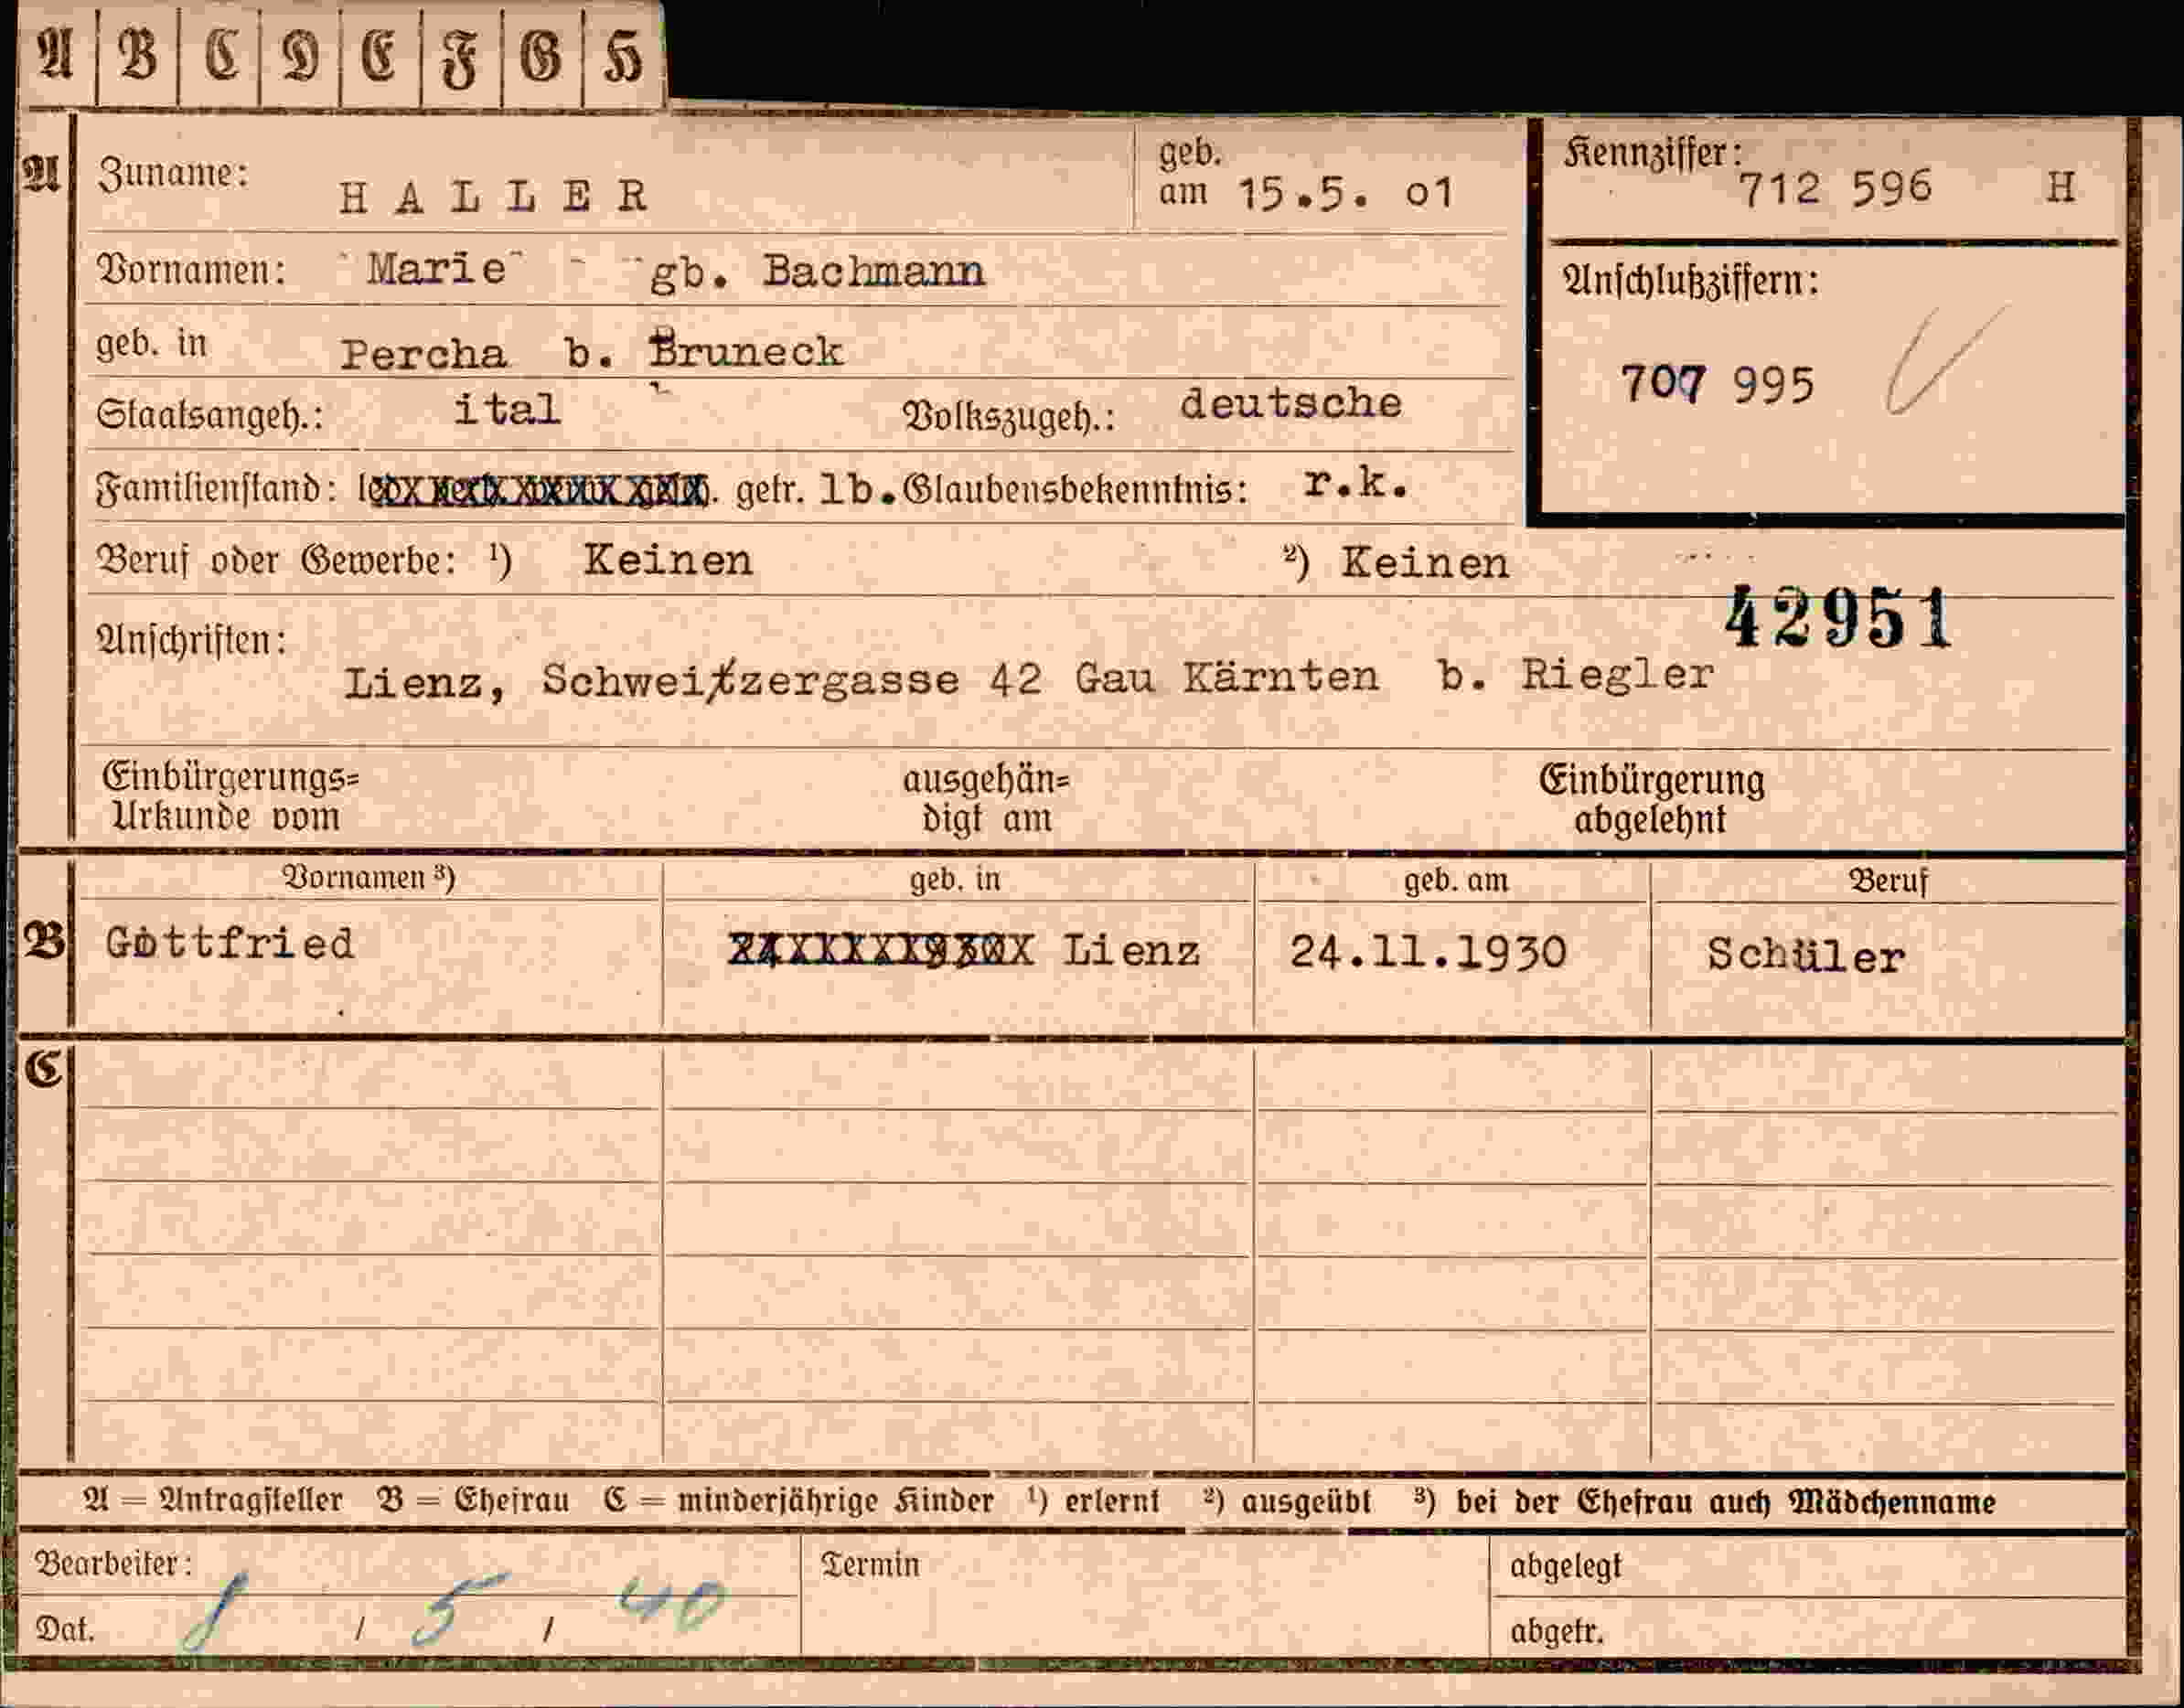 A B C D E F G H
A Zuname: HALLER geb. am 15.5. o1 Kennziffer: 712 596 H
Vornamen: Marie gb. Bachmann
Anschlußziffern:
geb. in Percha b. Bruneck
707 995
Staatsangeh.: ital Volkszugeh.: deutsche
Familienstand: getr. lb. Glaubensbekenntnis: r.k.
Beruf oder Gewerbe: ¹) Keinen ²) Keinen
42951
Anschriften:
Lienz, Schweitzergasse 42 Gau Kärnten b. Riegler
Einbürgerungs= ausgehän= Einbürgerung
Urkunde vom digt am abgelehnt
Vornamen ³) geb. in geb. am Beruf
B Gottfried Lienz 24.11.1930 Schüler
C
A = Antragsteller B = Ehefrau C = minderjährige Kinder ¹) erlernt ²) ausgeübt ³) bei der Ehefrau auch Mädchenname
Bearbeiter: Termin abgelegt
Dat. 8 / 5 / 40 abgetr.